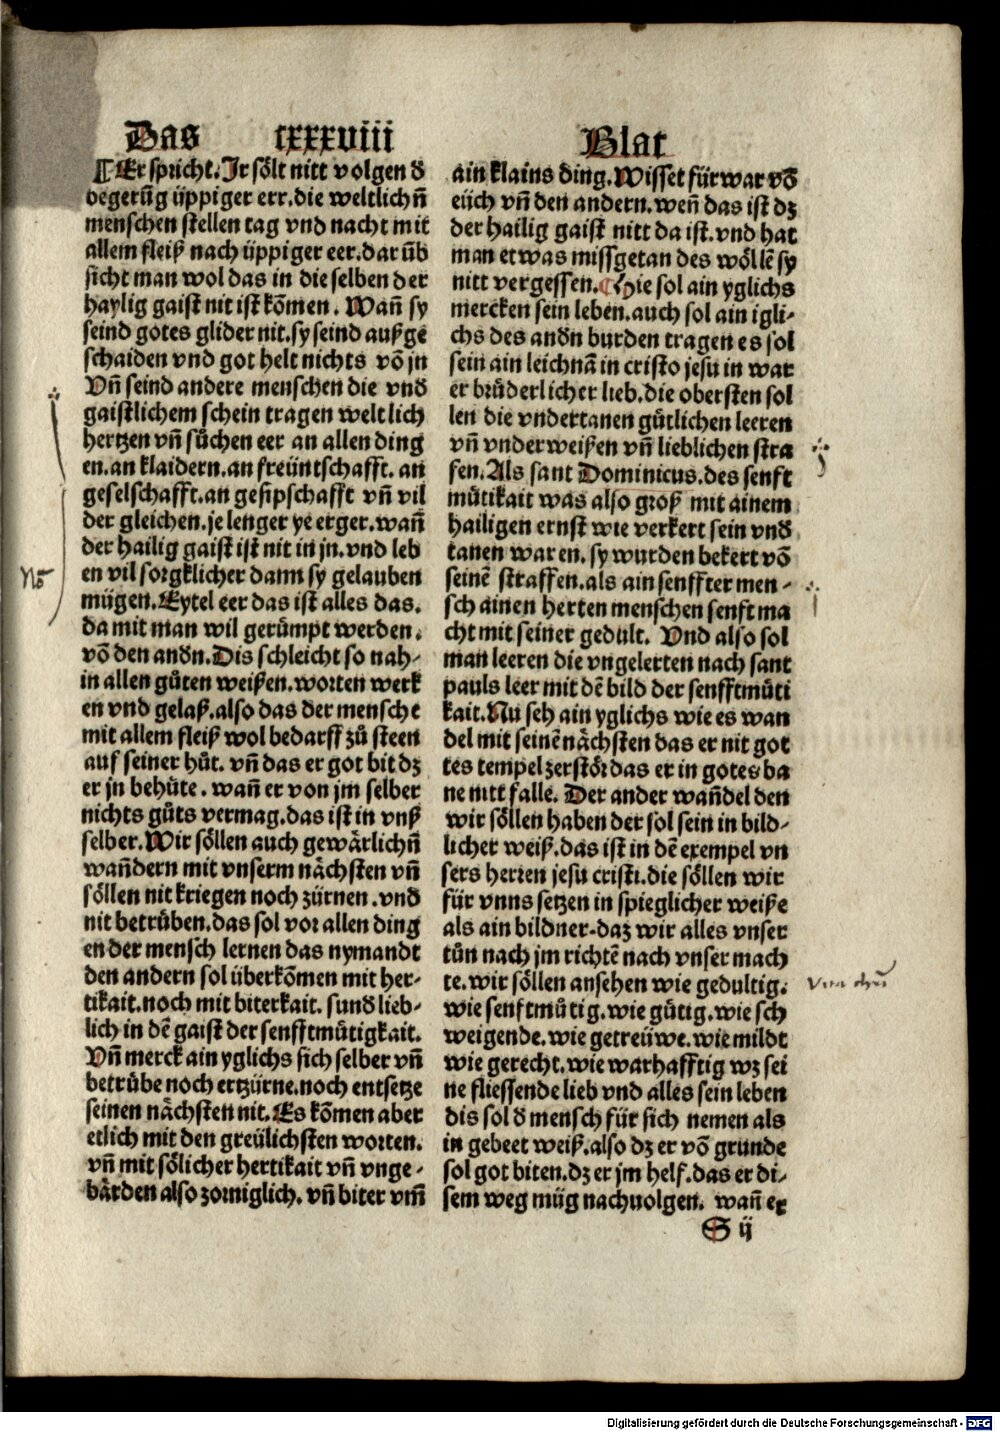 Das cxxxviii Blat
¶ Er spricht. Ir sölt nitt volgen d̄
begerūg üppiger err. die weltlichn̄
menschen stellen tag vnd nacht mit
allem fleiß nach üppiger eer. dar üb
sicht man wol das in die selben der
haylig gaist nit ist kōmen. Wañ sy
seind gotes glider nit. sy seind außge
schaiden vnd got helt nichts vō jn
Vñ seind andere menschen die vnd̄
gaistlichem schein tragen weltlich
hertzen vñ sůchen eer an allen ding
en. an klaidern. an freüntschafft. an
geselschafft. an gesipschafft vñ vil
der gleichen. je lenger ye erger. wañ
der hailig gaist ist nit in jn. vnd leb
en vil sorgklicher dann sy gelauben
mügen. Eytel eer das ist alles das.
da mit man wil gerümpt werden.
vō den andn. Dis schleicht so nah-
in allen gůten weißen. worten werk
en vnd gelaß. also das der mensche
mit allem fleiß wol bedarff zů steen
auf seiner hůt. vñ das er got bit dz
er jn behüte. wañ er von jm selber
nichts gůts vermag. das ist in vnß
selber. Wir söllen auch gewärlichn̄
wañdern mit vnserm nächsten vñ
söllen nit kriegen noch zürnen. vnd̄
nit betrüben. das sol vor allen ding
en der mensch lernen das nymandt
den andern sol überkōmen mit her-
tikait. noch mit biterkait. sund̄ lieb-
lich in dē gaist der senfftmütigkait.
Vñ merck ain yglichs sich selber vñ
betrübe noch ertzürne. noch entsetze
seinen nächsten nit. Es kōmen aber
etlich mit den greülichsten worten.
vñ mit sölicher hertikait vñ vnge-
bärden also zorniglich. vñ biter vm̄
ain klains ding. Wisset für war vō
eüch vñ den andern. weñ das ist dz
der hailig gaist nitt da ist. vnd hat
man etwas missgetan des wöllē sy
nitt vergessen. ¶ Hie sol ain yglichs
mercken sein leben. auch sol ain igli-
chs des andn burden tragen es sol
sein ain leichnā in cristo jesu in war
er brüderlicher lieb. die obersten sol
len die vndertanen gütlichen leeren
vñ vnderweißen vñ lieblichen stra
fen. Als sant Dominicus. des senft
mütikait was also groß mit ainem
hailigen ernst wie verkert sein vnd̄
tanen waren. sy wurden bekert vō
seinē straffen. als ain senffter men-
sch ainen herten menschen senft ma
cht mit seiner gedult. Vnd also sol
man leeren die vngelerten nach sant
pauls leer mit dē bild der senfftmüti
kait. Nu seh ain yglichs wie es wan
del mit seinē nächsten das er nit got
tes tempel zerstör das er in gotes ba
ne nitt falle. Der ander wañdel den
wir söllen haben der sol sein in bild-
licher weiß. das ist in dē exempel vn
sers herren jesu cristi. die söllen wir
für vnns setzen in spieglicher weiße
als ain bildner. daz wir alles vnser
tůn nach jm richtē nach vnser mach
te. wir söllen ansehen wie gedultig.
wie senftmütig. wie gütig. wie sch
weigende. wie getreüwe. wie mildt
wie gerecht. wie warhafftig wz sei
ne fliessende lieb vnd alles sein leben
dis sol d̄ mensch für sich nemen als
in gebeet weiß. also dz er vō grunde
sol got biten. dz er jm helf. das er di-
sem weg müg nachuolgen. wañ er
S ij
Digitalisierung gefördert durch die Deutsche Forschungsgemeinschaft - DFG